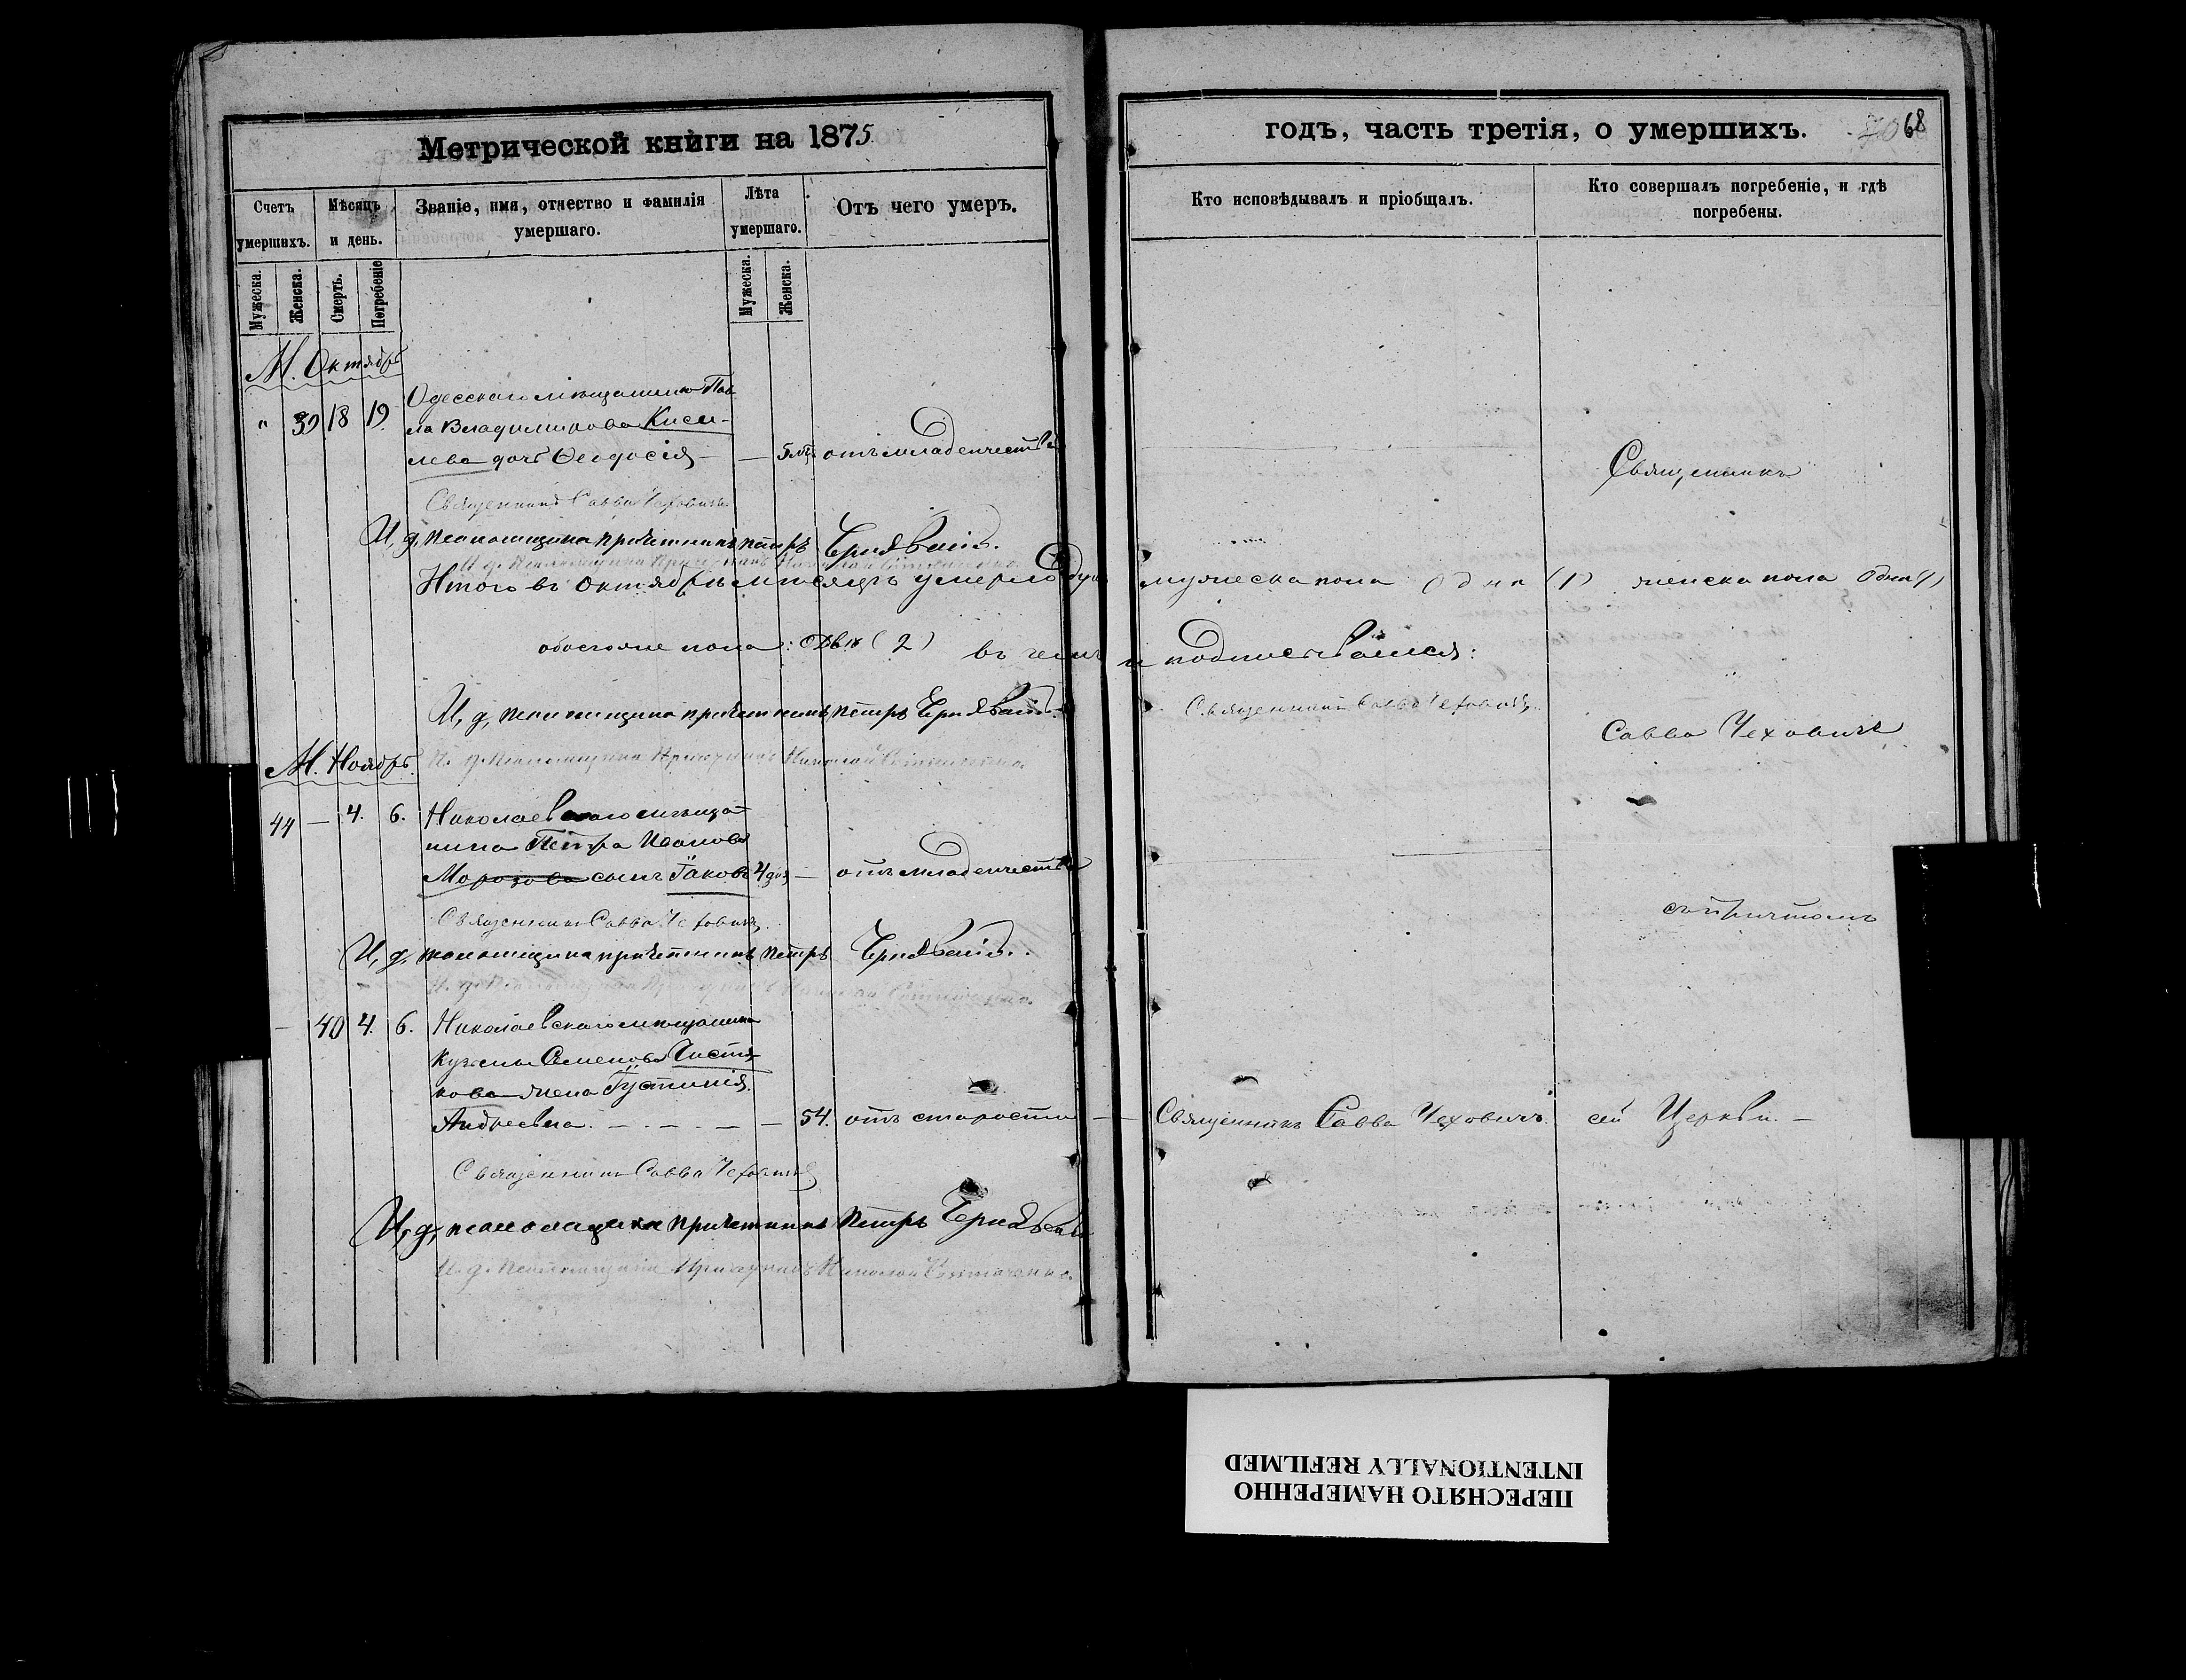 Метрической книги на 1875
годъ, часть третія, о умершихъ.
68
Счетъ умершихъ.
Мѣсяцъ и день.
Званіе, имя, отчество и фамилія умершаго.
Лѣта умершаго.
Отъ чего умеръ.
Кто исповѣдывалъ и пріобщалъ.
Кто совершалъ погребеніе, и гдѣ погребены.
Мужеска.
Женска.
Смерть.
Погребеніе
Мужеска.
Женска.
М. Октябрь
" 39 18 19 Одесскаго мѣщанина Пав-
ла Владимирова Кисе-
лева дочь Ѳеодосія — — 5 отъ младенчества
Священникъ
Священникъ Савва Чеховичъ
И, д, псаломщика причетникъ Петръ
И. д. Псаломщика Николай
Итого въ Октябрѣ мѣсяцѣ умерло душ мужеска пола одна (1) женска пола одна (1)
обоего же пола: Двѣ (2) въ чемъ и подписываемся:
И, д, псаломщика причетникъ Петръ
Священникъ Савва Чеховичъ
Савва Чеховичъ
М. Ноябрь.
И. д. Псаломщика Николай
44 — 4. 6. Николаевскаго мѣща-
нина Петра Иванова
Морозова сынъ Іаковъ 4 дн. — отъ младенчества
Священникъ Савва Чеховичъ
съ причтомъ
И, д, псаломщика причетникъ Петръ
— 40 4. 6. Николаевскаго мѣщанина
Кузьмы Семенова Чистя-
кова жена Іустинія
Андреевна. — — — — 54. отъ старости — Священникъ Савва Чеховичъ. сей Церкви. —
Священникъ Савва Чеховичъ
И, д, псаломщика причетникъ Петръ
И. д. Псаломщика Николай
ПЕРЕСНЯТО НАМЕРЕННО
INTENTIONALLY REFILMED